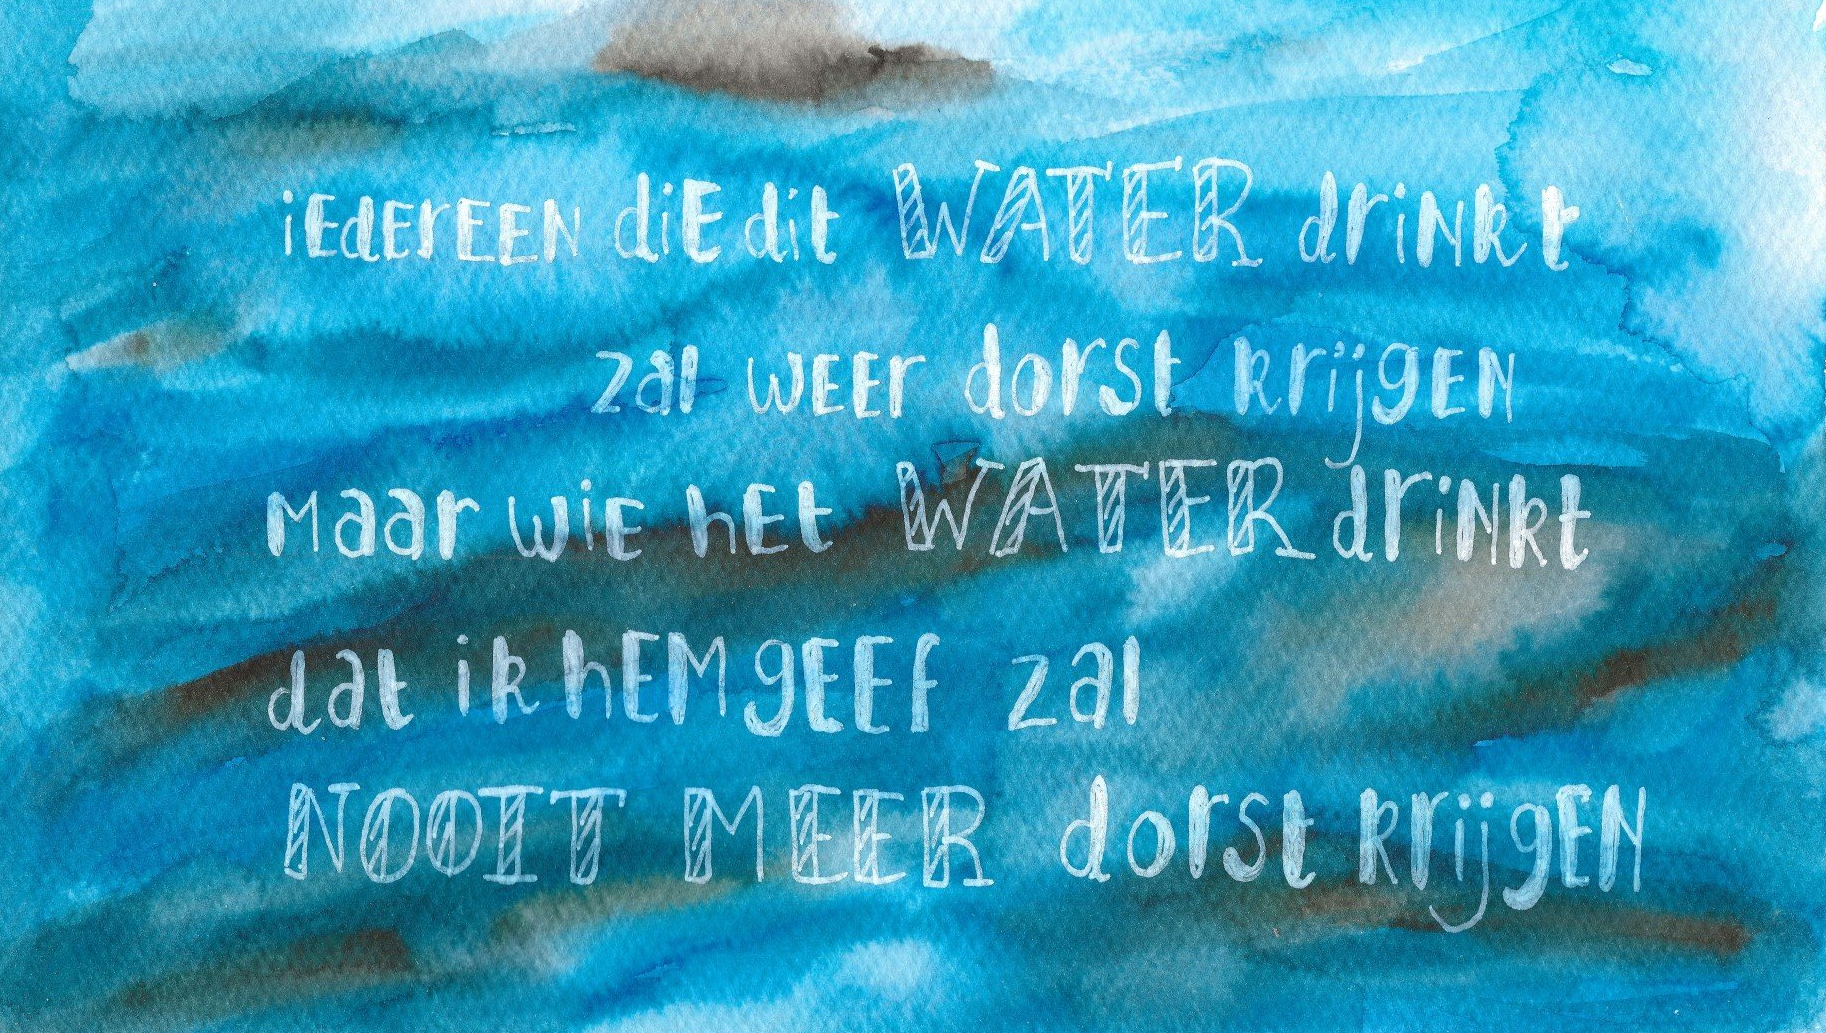 iedereen die dit WATER drinkt
zal weer dorst krijgen
maar wie het WATER drinkt
dat ik hem geef zal
NOOIT MEER dorst krijgen